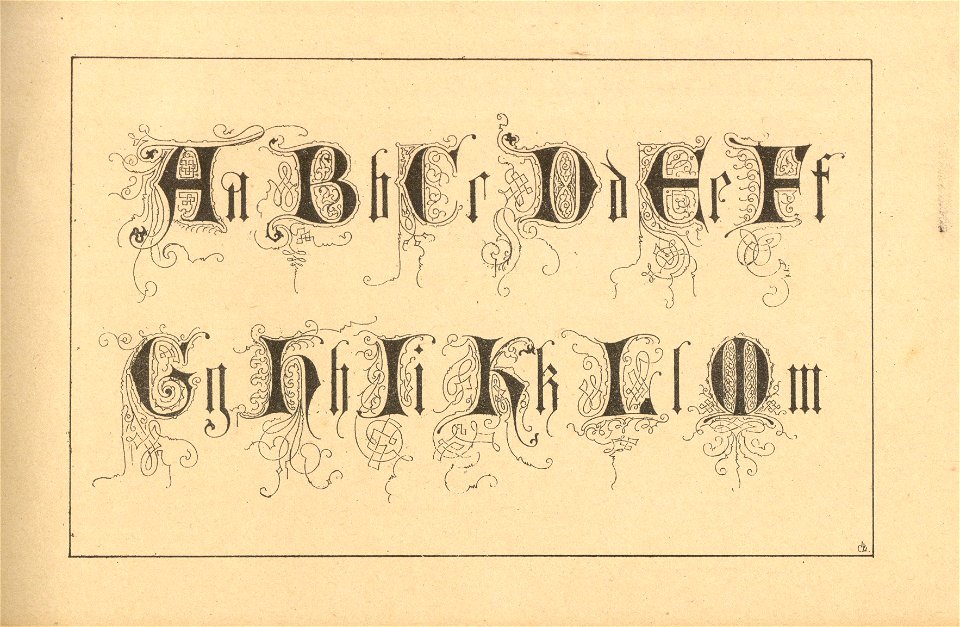 Aa Bb Cc Dd Ee Ff
Gg Hh Ii Kk Ll Mm